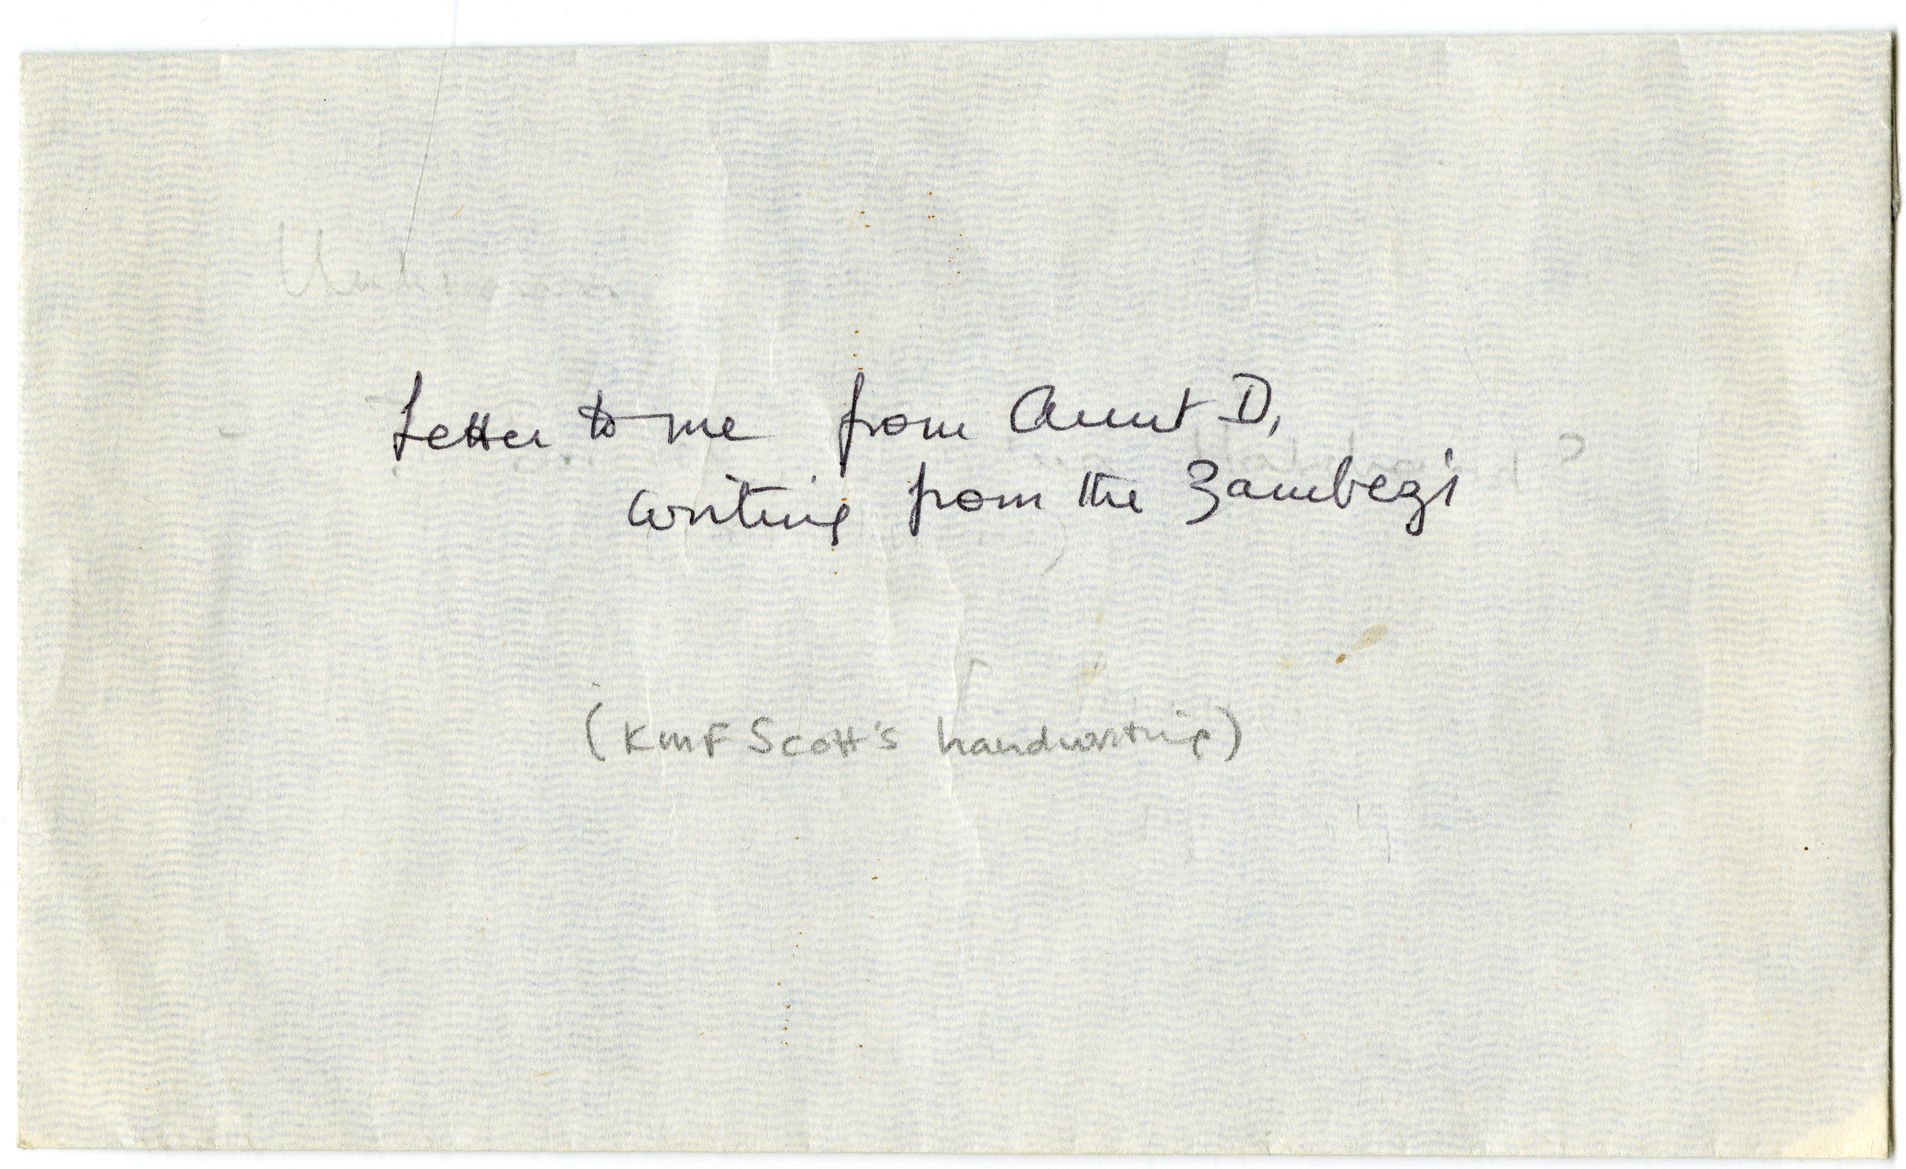 Unknown
Letter to me from Aunt D,
writing from the Zambezi
(KMF Scott's handwriting)